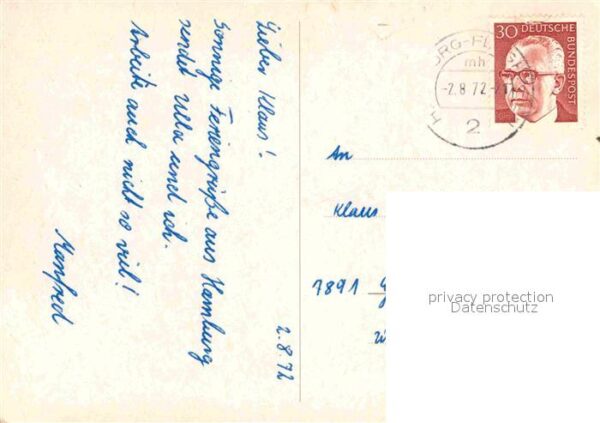 Lieber Klaus!
Sonnige Feriengrüße aus Hamburg
sendet Ulla und ich.
Arbeite auch nicht so viel!
Manfred
2.8.72
30
DEUTSCHE
BUNDESPOST
mh
-2.8.72
2
An
Klaus
7891
privacy protection
Datenschutz